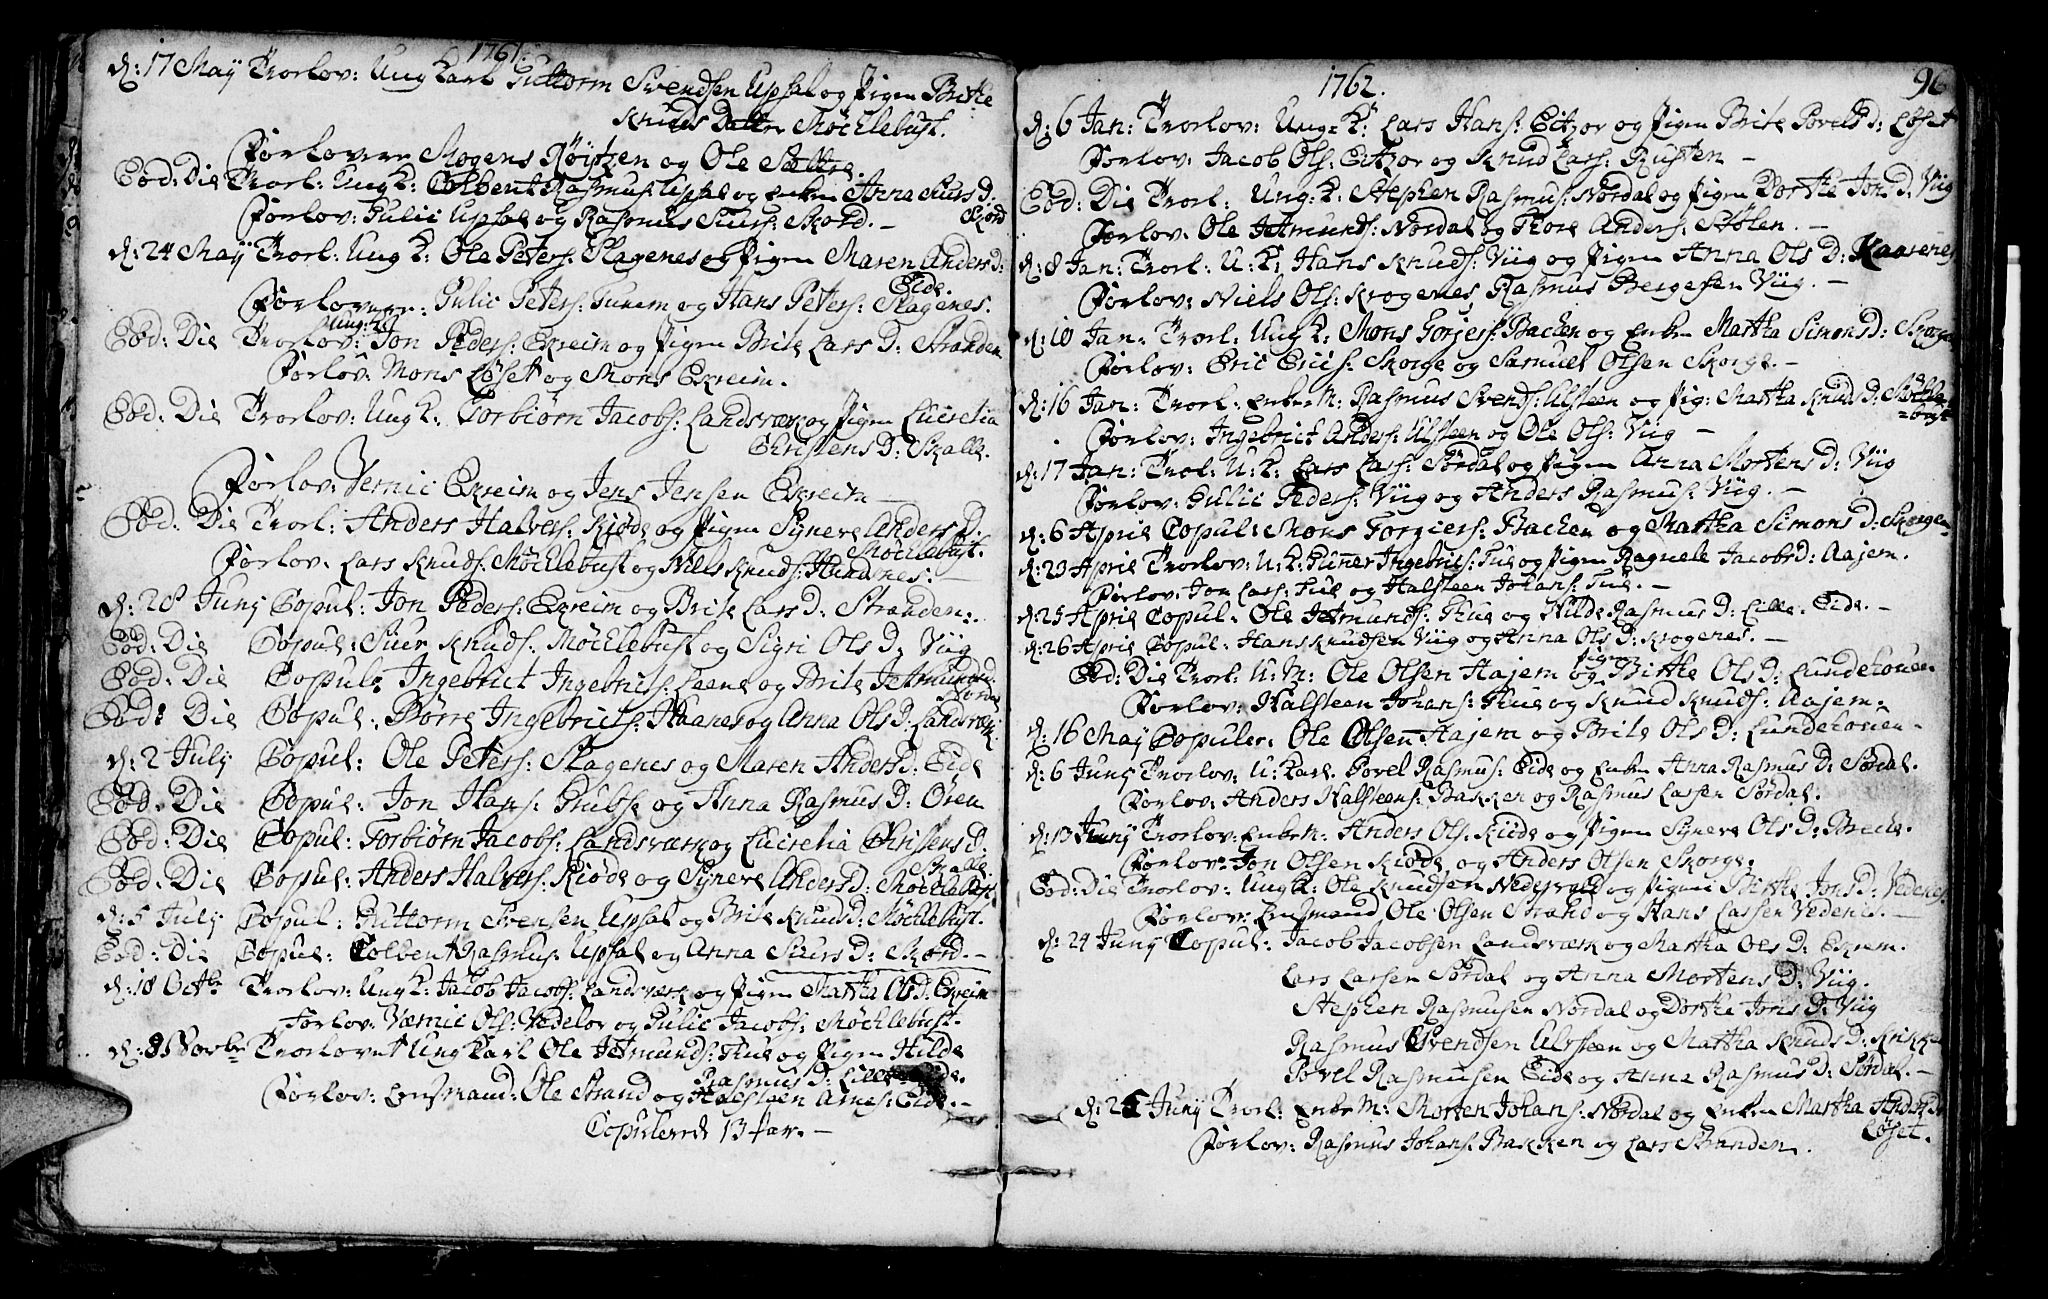 1761.
d: 17 Maÿ Trorlov: Ung Karl Guttorm Svendsen Upsal og Pigen Birthe
Knuds Datter Møchlebust.
Forlovere Mogens Røÿtzen og Ole Sættre.
Eod: Die Trorl: Ung K: Colbent Rasmus: Upsal og Enken Anna Siurs D:
Skord
Forlov: Gulic Upsal og Rasmus Siurs: Skord. –
d: 24 Maÿ Trorl: Ung K: Ole Peters: Slagenes og Pigen Maren Anders D:
Eide.
Forlovere: Gulic Peters: Furem og Hans Peters: Slagenes.
Eod: Die Trorlov: Ung: K: Jon Peders: Ekreim og Pigen Brite Lars D: Stranden
Forlov: Mons Løset og Mons Ekreim.
Eod: Die Trorlov: Ung K: Torbiørn Jacobs: Landsværk og Pigen Lucretia
Christens D: Skalle.
Forlov: Vernic Ekreim og Jens Jensen Ekreim –
Eod: Die Trorl: Anders Halvers: Kiøde og Pigen Syneve Anders D:
Møchlebust.
Forlov: Lars Knuds: Møchlebust og Nils Knuds: Hindnes: –
d: 28 Junÿ Copul: Jon Peders: Ekreim og Brite Lars D: Stranden.
Eod: Die Copul: Siur Knuds: Møchlebust og Sigri Ols D: Viig
Eod: Die Copul: Ingebrict Ingebrics: Leene og Brite Jetmunds D:
Eod: Die Copul: Børre Ingebrics: Haanes og Anna Ols D: Landsværk.
d: 2 Julÿ Copul: Ole Peters: Slagenes og Maren Anders D: Eide
Eod: Die Copul: Jon Hans: Grubse og Anna Rasmus D: Ören
Eod: Die Copul: Torbiørn Jacobs: Landsværk og Lucretia Christens D:
Skalle.
Eod: Die Copul: Anders Halvers: Kiøde og Syneve Anders D: Møchlebust.
d: 5 Julÿ Copul: Guttorm Svensen Upsal og Brite Knuds D: Møchlebust.
Eod: Die Copul: Colbent Rasmus: Upsal og Anna Siurs D: Skord. –
d: 18 Octbr Trorlov: Ung K: Jacob Jacobs: Landsværk og Pigen Martha Ols D: Ekreim
Forlov: Værnic Ols: Vedelor og Gulic Jacobs: Møchlebust.
d: 8 Novbr Trorlovet Ung Karl Ole Jetmunds: Hue og Pigen Hilde
Rasmus D: Lille Eide.
Forlov: Lensmand: Ole Strand og Halsteen Arnes: Eide. –
Copulered 13 Par. –
1762.
96
d: 6 Jan: Trorlov: Ung K: Lars Hans: Eitzor og Pigen Brite Povels D: Løset
Forlov: Jacob Ols: Eitzor og Knud Lars: Rusten –
Eod: Die Trorl: Ung: K: Stephen Rasmus: Nordal og Pigen Dorthe Jons D: Viig
Forlov: Ole Jetmunds: Nordal og Thore Anders: Stølen. –
d: 8 Jan: Trorl: U: K: Hans Knuds: Viig og Pigen Anna Ols D: Kaasenes
Forlov: Niels Ols: Krogenes, Rasmus Bergesen Viig. –
d: 10 Jan: Trorl: Ung K: Mons Torjers: Backen og Enken Martha Simons D: Skorge
Forlov: Eric Erics: Skorge og Samuel Olsen Skorge. –
d: 16 Jan: Trorl: Enke M: Rasmus Svends: Ulsteen og Pig: Martha Knuds D: Møchle-
-bust
Forlov: Ingebrict Anders: Ulsteen og Ole Ols: Viig –
d: 17 Jan: Trorl: U: K: Lars Lars: Sørdal og Pigen Anna Mortens D: Viig
Forlov: Gulic Peders: Viig og Anders Rasmus: Viig. –
d: 6 April Copul: Mons Torgiers: Backen og Martha Simons D: Skorgen
d: 23 April Trorlov: U: K: Giner Ingebrics: Tue og Pigen Ragnele Jacobs D: Aajem.
Forlov: Jon Lars: Tue og Halsteen Johans: Tue. –
d: 25 April Copul: Ole Jetmunds: Hue og Hilde Rasmus D: Lille Eide. –
d: 26 April Copul: Hans Knudsen Viig og Anna Ols D: Krogenes. –
Eod: Die Trorl: U: M: Ole Olsen Aajem og Pigen Birthe Ols D: Lundekouen
Forlov: Halsteen Johans: Hue og Knud Knuds: Aajem.
d: 16 Maÿ Copuler: Ole Olsen Aajem og Brite Ols D: Lundekouen –
d: 6 Junÿ Trorlov: U: Karl Povel Rasmus: Eide og Enken Anna Rasmus D: Sørdal.
Forlov: Anders Halsteens: Bakken og Rasmus Larsen Sørdal.
d: 13 Junÿ Trorlov: Enke M: Anders Ols: Kiøde og Pigen Syneve Ols D: Breche.
Forlov: Jon Olsen Kiøde og Anders Olsen Skorge.
Eod: Die Trorlov: Ung K: Ole Knudsen Nedrevold og Pigen Birthe Jons D: Vedenes
Forlov: Lensmand Ole Olsen Strand og Hans Larsen Vedenes. –
d: 24 Junÿ Copul: Jacob Jacobsen Landsværk og Martha Ols D: Ekrem.
Lars Larsen Sørdal og Anna Mortens D: Viig.
Stephen Rasmusen Nordal og Dorthe Jons D: Viig
Rasmus Svendsen Ulsteen og Martha Knuds D:
Povel Rasmusen Eide og Anna Rasmus D: Sørdal. –
Junÿ Trorl: Enke M: Morten Johans: Nordal og Enken Martha Anders D:
Løset.
Forlov: Rasmus Johans: Bakken og Lars Stranden.